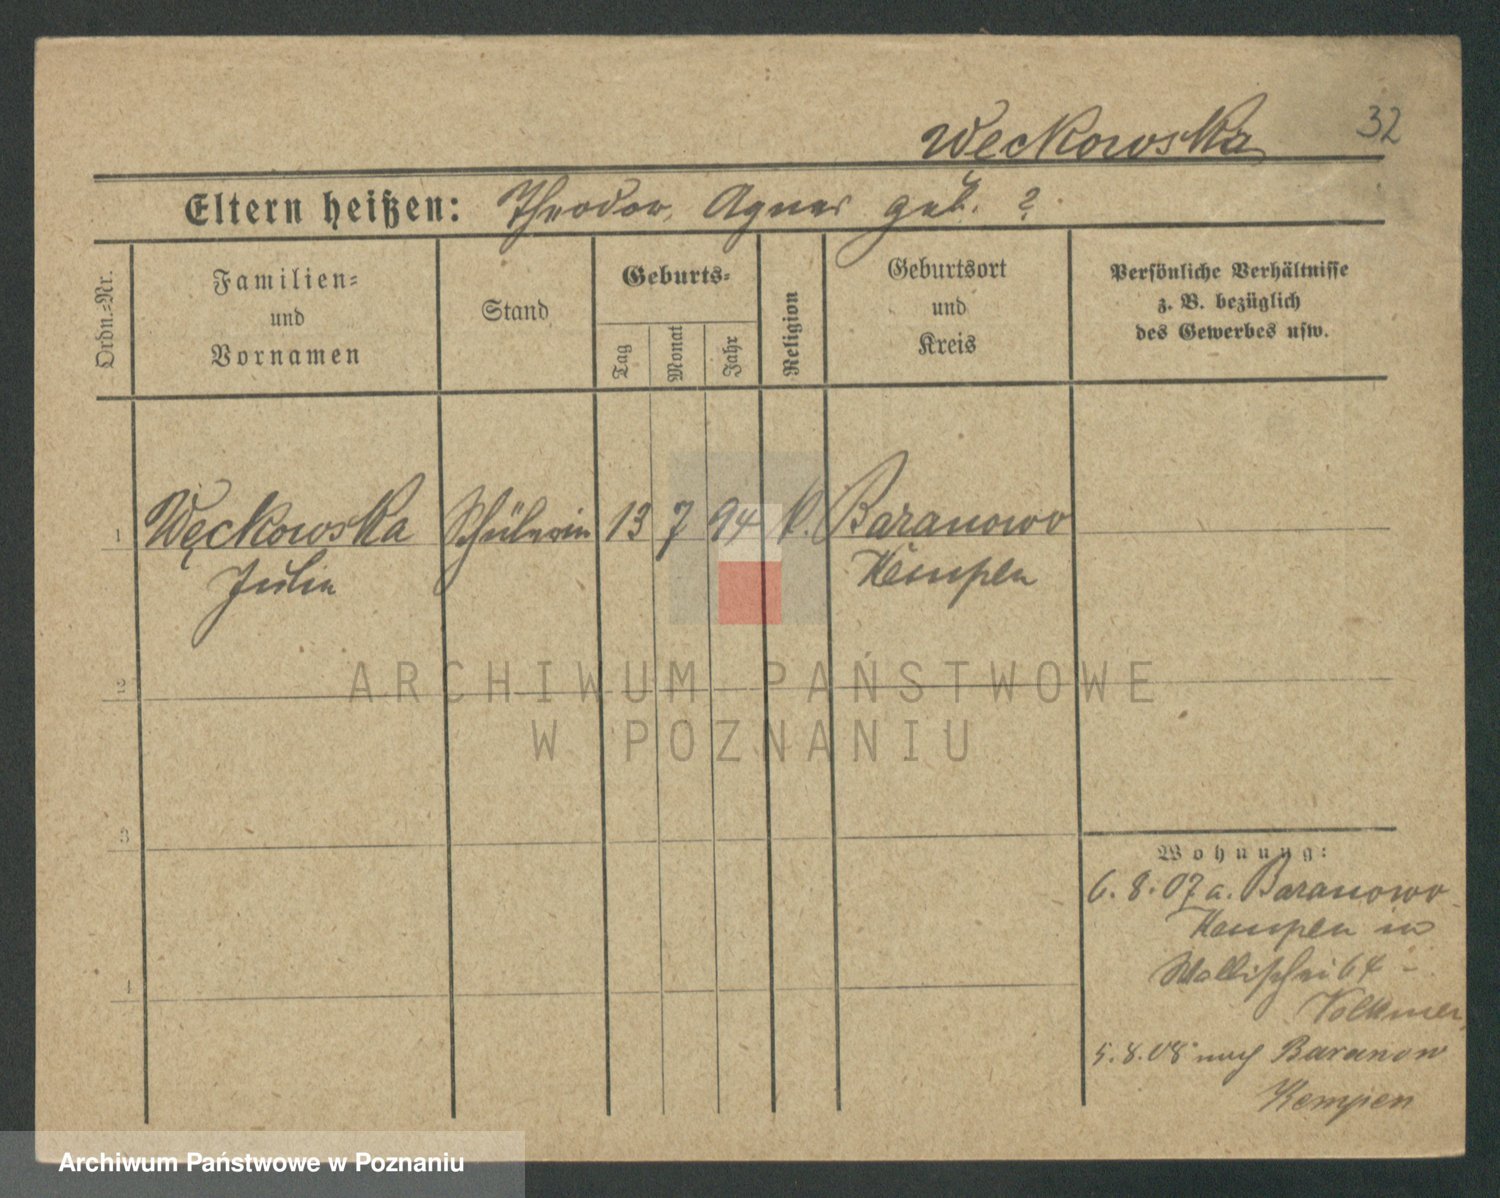 Węckowska
32
Eltern heißen: Theodor, Agnes geb. ?
Ordn.=Nr.
Familien=
und
Vornamen
Stand
Geburts=
Tag
Monat
Jahr
Religion
Geburtsort
und
Kreis
Persönliche Verhältnisse
z. B. bezüglich
des Gewerbes usw.
1 Węckowska Schülerin 13 7 94 k. Baranowo
Julia Kempen
2
3
4
Wohnung:
6.8.07 a. Baranowo
Kempen in
Wallischei 64 -
Volkmer
5.8.08 nach Baranow
Kempen
ARCHIWUM PAŃSTWOWE
W POZNANIU
Archiwum Państwowe w Poznaniu